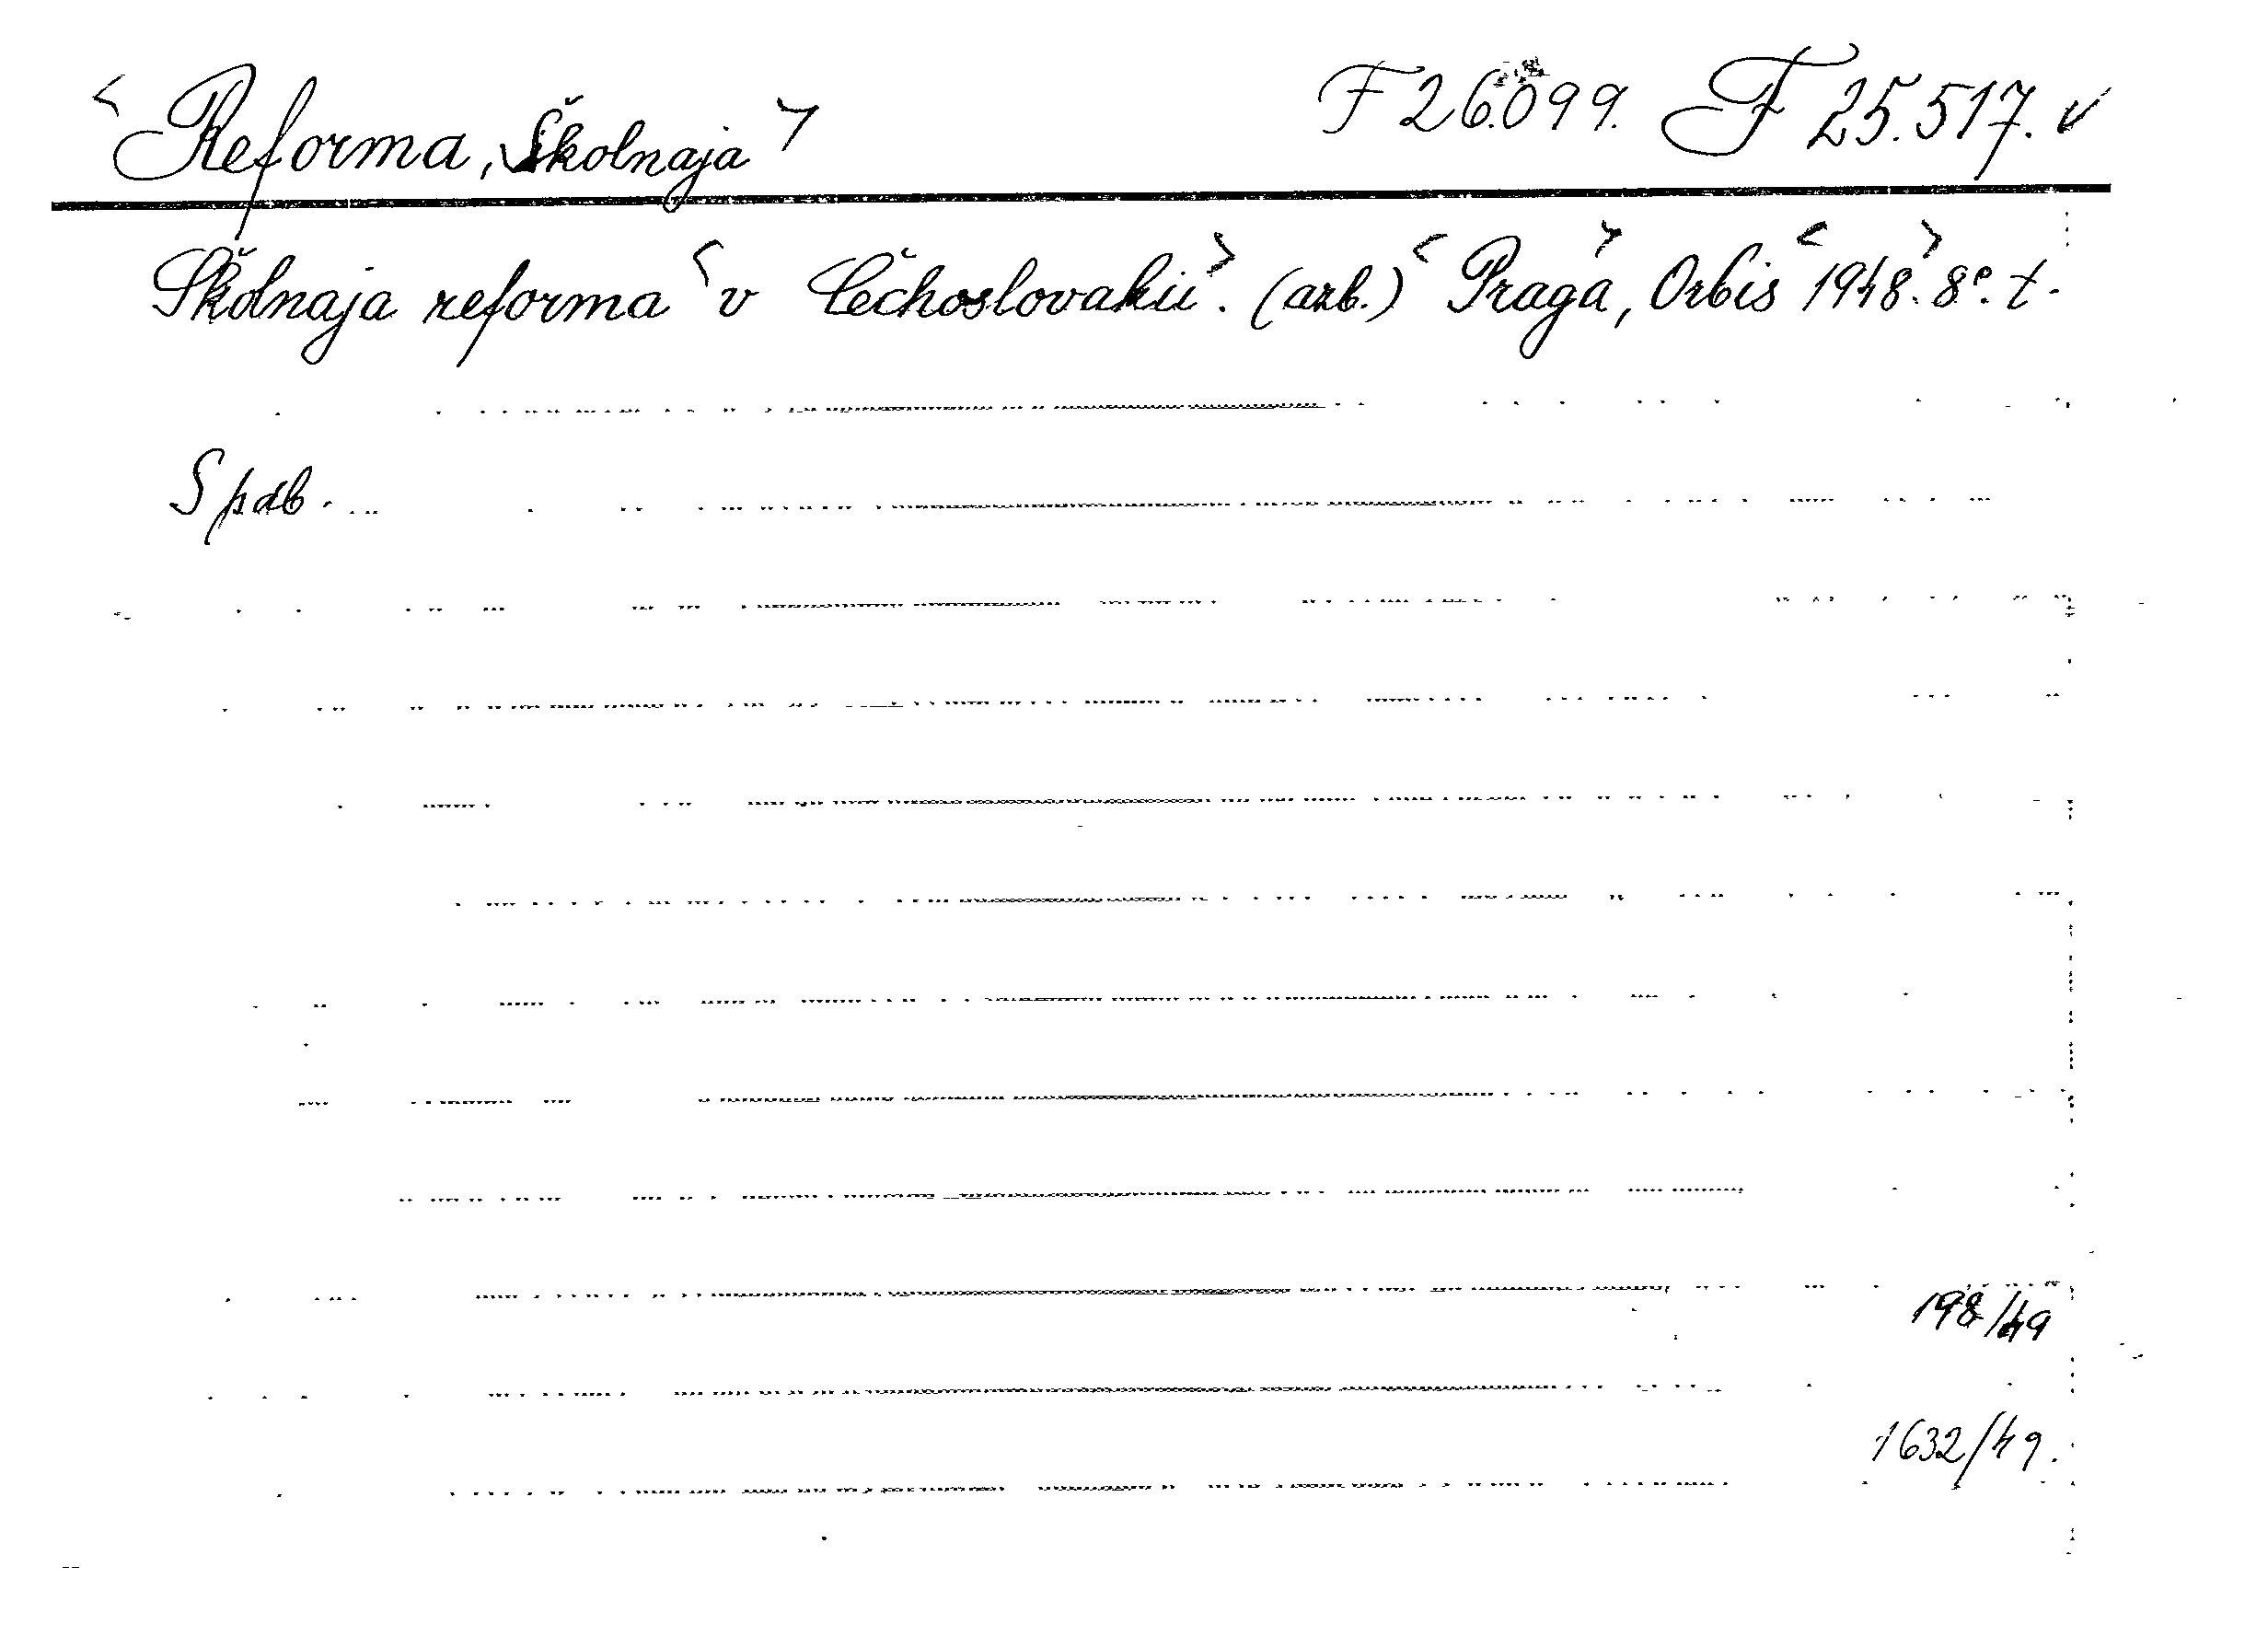 < Reforma, Školnaja > F 26.099. F 25.517. v
Školnaja reforma < v Čechoslovakii >. (azb.) < Praga >, Orbis < 1948 >. 8°. t.
S pab.
198/49
1632/49.